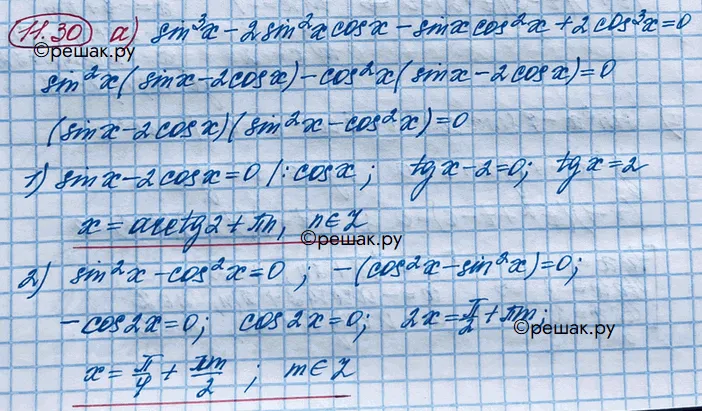 11.30 а) sin³x - 2sin²x cosx - sinx cos²x + 2cos³x = 0
©решак.ру
sin²x(sinx - 2cosx) - cos²x(sinx - 2cosx) = 0
(sinx - 2cosx)(sin²x - cos²x) = 0
1) sinx - 2cosx = 0 |: cosx ; tgx - 2 = 0; tgx = 2
x = arctg2 + πn, n ∈ Z
©решак.ру
2) sin²x - cos²x = 0 ; -(cos²x - sin²x) = 0;
- cos2x = 0; cos2x = 0; 2x = π/2 + πm;
©решак.ру
x = π/4 + πm/2 ; m ∈ Z